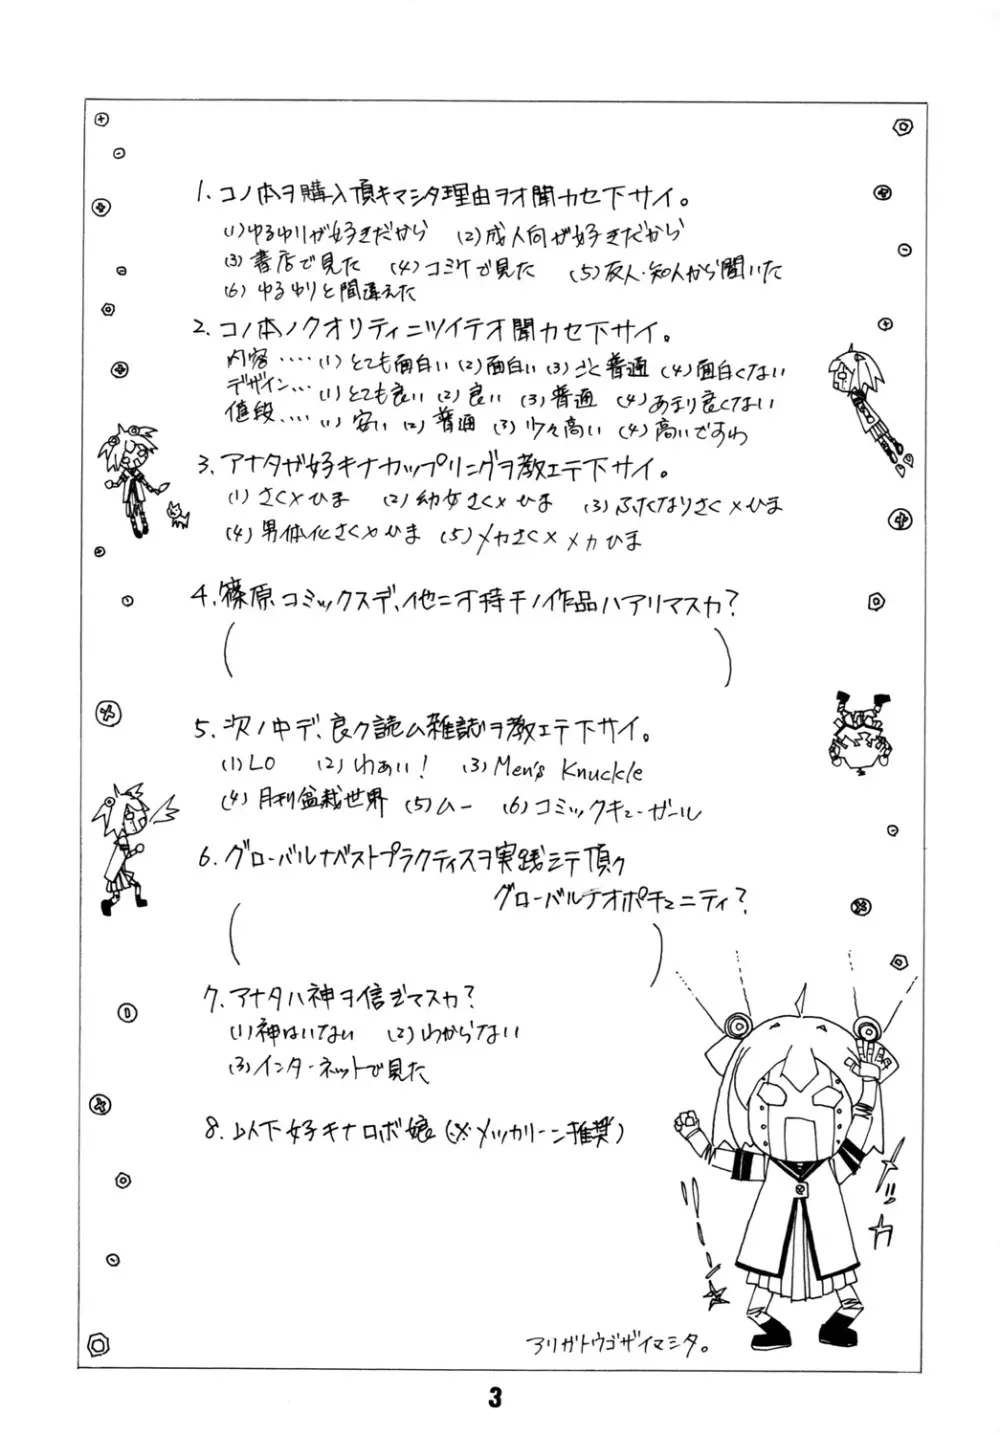 1. コノ本ヲ購入頂キマシタ理由ヲオ聞カセ下サイ。
(1)ゆるゆりが好きだから (2)成人向が好きだから
(3)書店で見た (4)コミケで見た (5)友人・知人から聞いた
(6)ゆるゆりと間違えた
2. コノ本ノクオリティニツイテオ聞カセ下サイ。
内容・・・・(1)とても面白い (2)面白い (3)ごく普通 (4)面白くない
デザイン・・・(1)とても良い (2)良い (3)普通 (4)あまり良くない
値段・・・・(1)安い (2)普通 (3)少々高い (4)高いですわ
3. アナタガ好キナカップリングヲ教エテ下サイ。
(1)さく×ひま (2)幼女さく×ひま (3)ふたなりさく×ひま
(4)男体化さく×ひま (5)メカさく×メカひま
4. 篠原コミックスデ、他ニオ持チノ作品ハアリマスカ?
( )
5. 次ノ中デ、良ク読ム雑誌ヲ教エテ下サイ。
(1)LO (2)わぁい! (3)Men's Knuckle
(4)月刊盆栽世界 (5)ムー (6)コミックキューガール
6. グローバルナベストプラクティスヲ実践シテ頂ク
グローバルナオポチュニティ?
( )
7. アナタハ神ヲ信ジマスカ?
(1)神はいない (2)わからない
(3)インターネットで見た
8. 以下好キナロボ娘(※メッカリーン推奨)
ピカ
アリガトウゴザイマシタ。
3